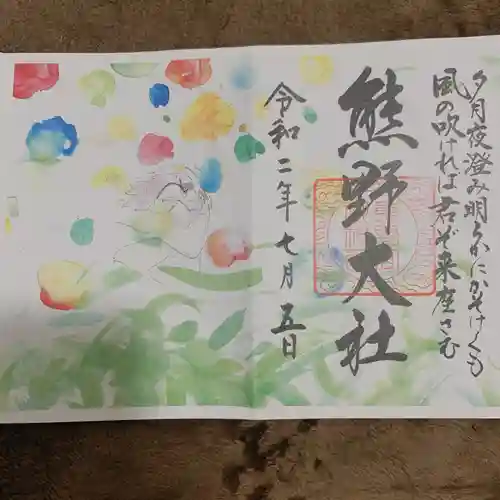 夕月夜澄み明らかにかそけくも
風の吹ければ君ぞ来座さむ
熊野大社
令和二年七月五日